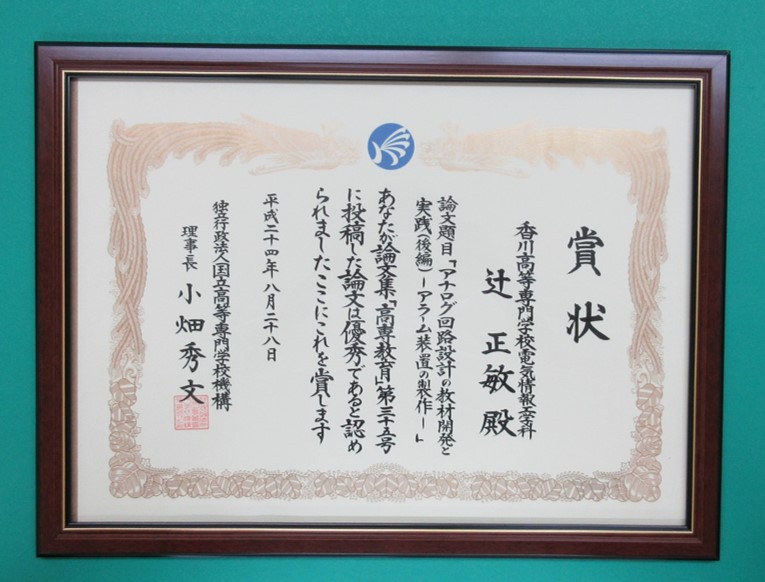 賞状
香川高等専門学校電気情報工学科
辻 正敏 殿
論文題目「アナログ回路設計の教材開発と
実践(後編)ーアラーム装置の製作ー」
あなたが論文集「高専教育」第三十五号
に投稿した論文は優秀であると認め
られましたここにこれを賞します
平成二十四年八月二十八日
独立行政法人国立高等専門学校機構
理事長 小畑秀文